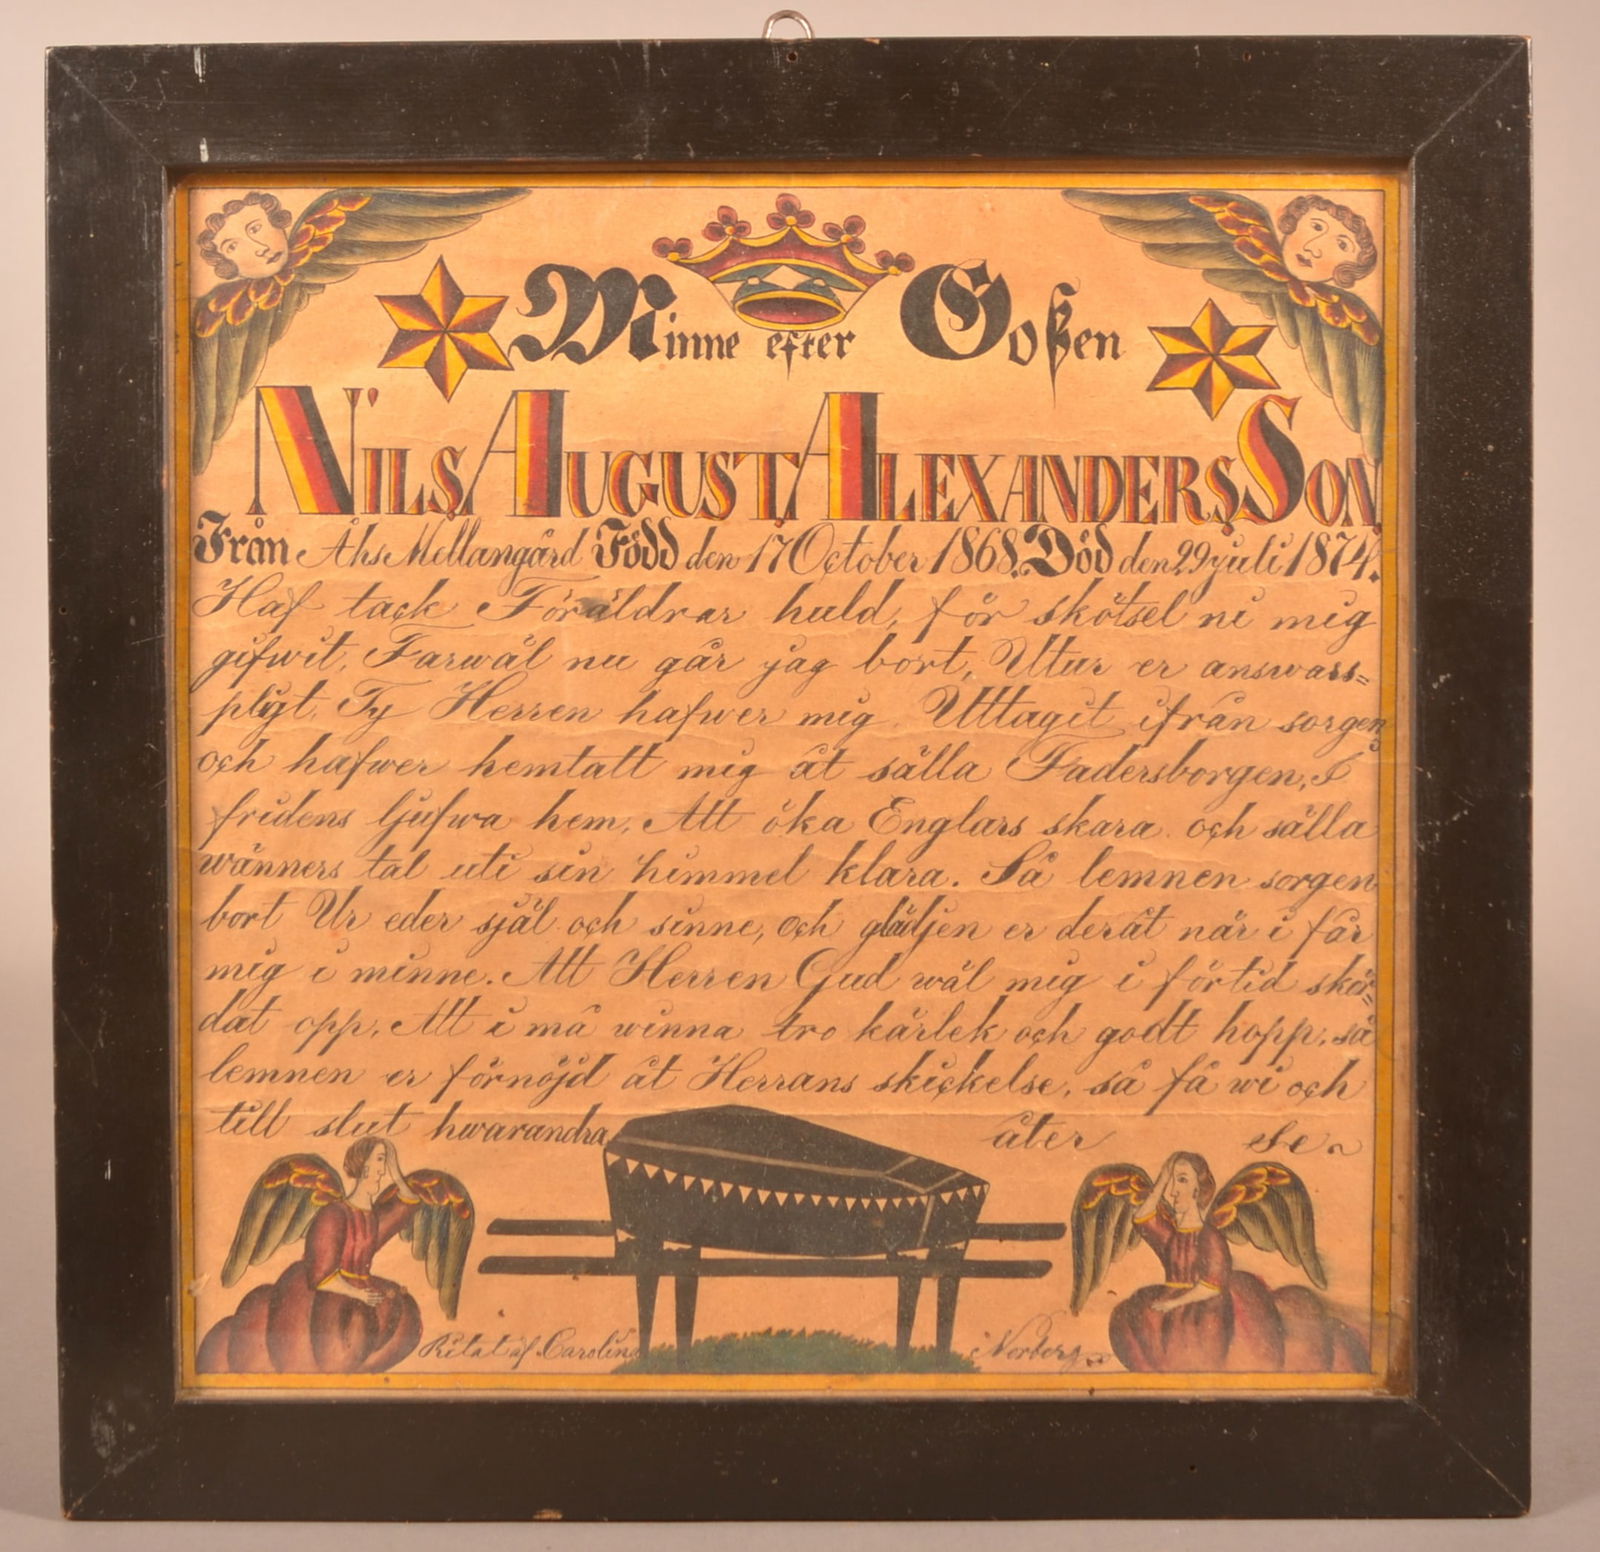 Minne efter Goßen
NILS AUGUST ALEXANDERS SON
Från Åhs Mellangård Född den 17 October 1868. Död den 29 juli 1874.
Haf tack Föräldrar huld, för skötsel ni mig
gifwit, Farwäl nu går jag bort, Utur er answars=
pligt, Ty Herren hafwer mig Uttagit ifrån sorgen
och hafwer hemtatt mig åt sälla Fadersborgen, I
fridens ljufwa hem, Att öka Englars skara och sälla
wänners tal uti sin himmel klara. Så lemnen sorgen
bort Ur eder själ och sinne, och glädjen er deråt när i får
mig i minne. Att Herren Gud wäl mig i förtid skör=
dat opp, Att i må winna tro kärlek och godt hopp, så
lemnen er förnöjd åt Herrans skickelse, så få wi och
till slut hwarandra åter se
Ritat af Carolina Norberg